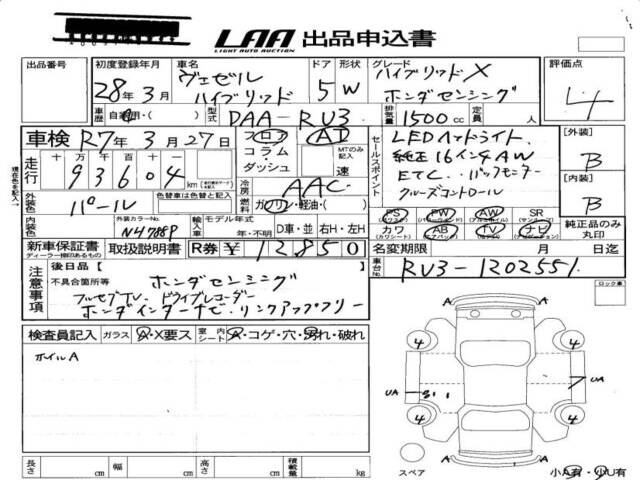 LAA 出品申込書
LIGHT AUTO AUCTION
出品番号 初度登録年月 車名 ドア 形状 グレード 評価点
28年3月 ヴェゼル ハイブリッド 5 W ハイブリッドX ホンダセンシング 4
車歴 自家用・( ) 型式 DAA-RU3 排気量 1500cc 定員 人
車検 R7年3月27日 フロア コラム・ダッシュ AT MTのみ記入 速
セールスポイント
LEDヘッドライト
純正16インチAW
ETC. バックモニター
クルーズコントロール
[外装]
B
[内装]
B
走行 十万 万 千 百 十 一
93604 km
冷房 AAC
外装色 パール 色替車は色替と記入 燃料 ガソリン・軽油・( )
内装色 外装カラーNo. N47889 輸入車 モデル年式 年・不明 D車 並 右H・左H
PS PW AW SR
カワ AB TV ナビ 純正品のみ丸印
新車保証書 取扱説明書 R券 ¥12850 名変期限 月 日迄
ディーラー捺印あるもの
車台No. RU3-1202551
現在色を記入→
注意事項
後日品[ ]
不具合箇所等 ホンダセンシング
フルセグTV. ドライブレコーダー
ホンダインターナビ. リンクアップフリー
ロック車
検査員記入 ガラス A・X要ス 室内シート A・コゲ・穴・汚れ・破れ
ホイルA
A A
4 4
UA UA
4 4
A A
長さ cm 幅 cm 高さ cm 積載量 kg
スペア 小A有・小U有